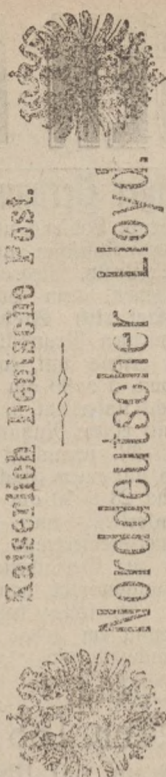 Kaiserlich Deutsche Post.
Norddeutscher Lloyd.